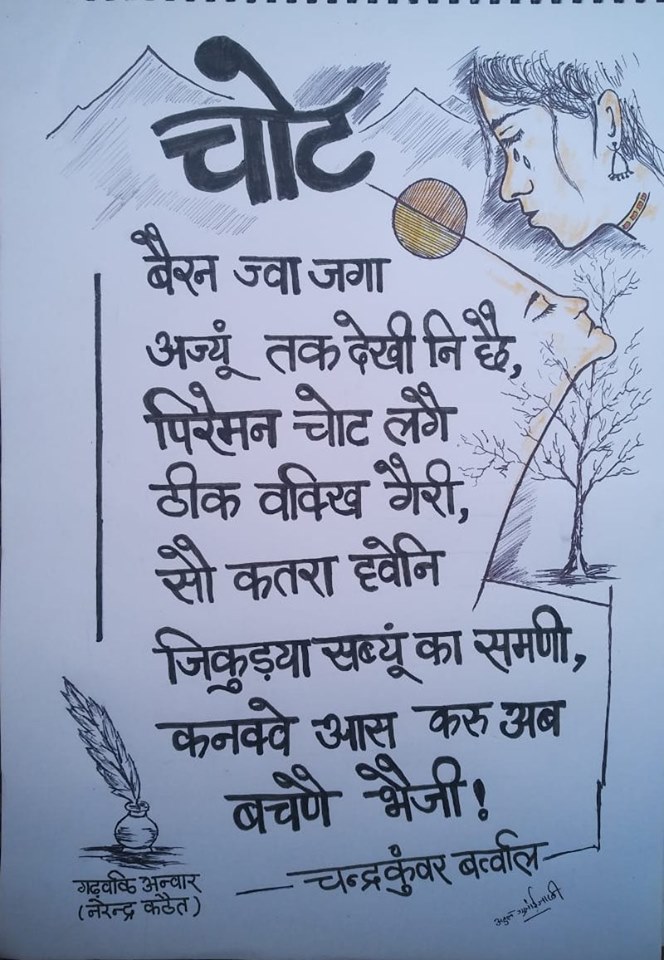 चोट
बैरन ज्वा जगा
अज्यूं तक देखी नि छै,
पिरेमन चोट लगै
ठीक वक्खि गैरी,
सौ कतरा ह्वेनि
जिकुड़्या सब्यूं का समणी,
कनक्वे आस करु अब
बचणै भैजी!
— चन्द्रकुंवर बर्त्वाल —
गढ़वाकि अन्वार
(नरेन्द्र कठैत)